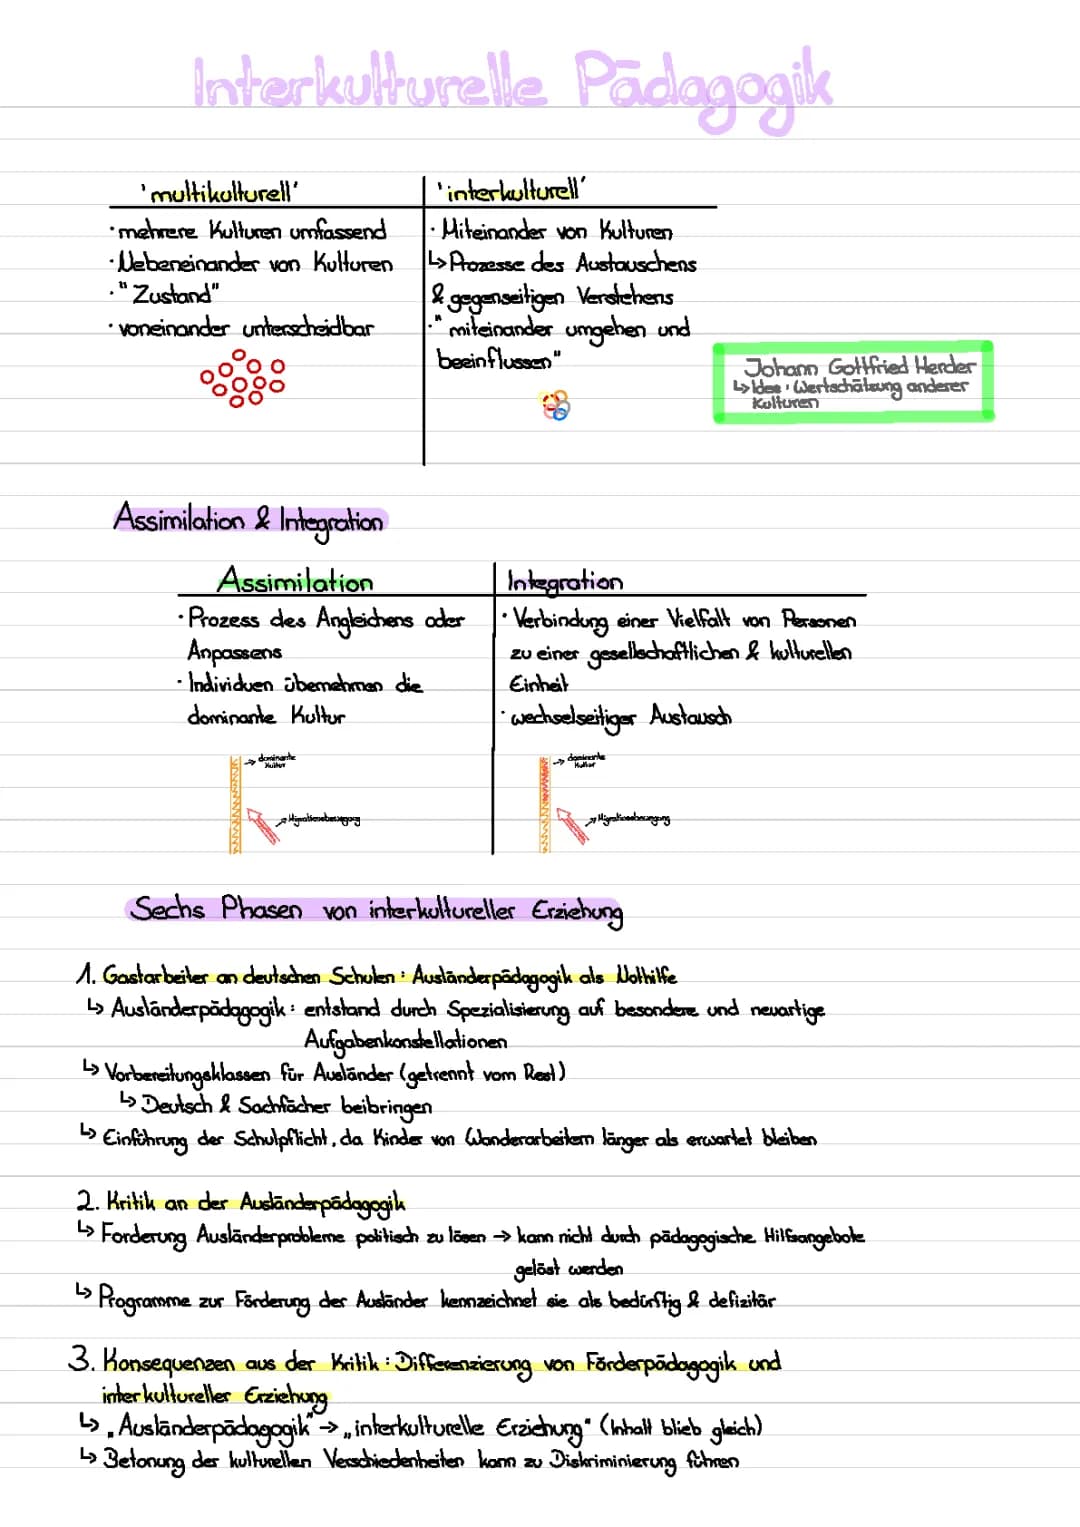 Interkulturelle Pädagogik
'multikulturell'
· mehrere Kulturen umfassend
· Nebeneinander von Kulturen
· "Zustand"
· voneinander unterscheidbar
'interkulturell'
· Miteinander von Kulturen
↳ Prozesse des Austauschens
& gegenseitigen Verstehens
· "miteinander umgehen und
beeinflussen"
Johann Gottfried Herder
↳ Idee: Wertschätzung anderer
Kulturen
Assimilation & Integration
Assimilation
· Prozess des Angleichens oder
Anpassens
· Individuen übernehmen die
dominante Kultur
→ dominante
Kultur
→ Migrationsbewegung
Integration
· Verbindung einer Vielfalt von Personen
zu einer gesellschaftlichen & kulturellen
Einheit
· wechselseitiger Austausch
→ dominante
Kultur
→ Migrationsbewegung
Sechs Phasen von interkultureller Erziehung
1. Gastarbeiter an deutschen Schulen: Ausländerpädagogik als Nothilfe
↳ Ausländerpädagogik: entstand durch Spezialisierung auf besondere und neuartige
Aufgabenkonstellationen
↳ Vorbereitungsklassen für Ausländer (getrennt vom Rest)
↳ Deutsch & Sachfächer beibringen
↳ Einführung der Schulpflicht, da Kinder von Wanderarbeitern länger als erwartet bleiben
2. Kritik an der Ausländerpädagogik
↳ Forderung Ausländerprobleme politisch zu lösen → kann nicht durch pädagogische Hilfsangebote
gelöst werden
↳ Programme zur Förderung der Ausländer kennzeichnet sie als bedürftig & defizitär
3. Konsequenzen aus der Kritik: Differenzierung von Förderpädagogik und
interkultureller Erziehung
↳ „Ausländerpädagogik" → „interkulturelle Erziehung" (Inhalt blieb gleich)
↳ Betonung der kulturellen Verschiedenheiten kann zu Diskriminierung führen